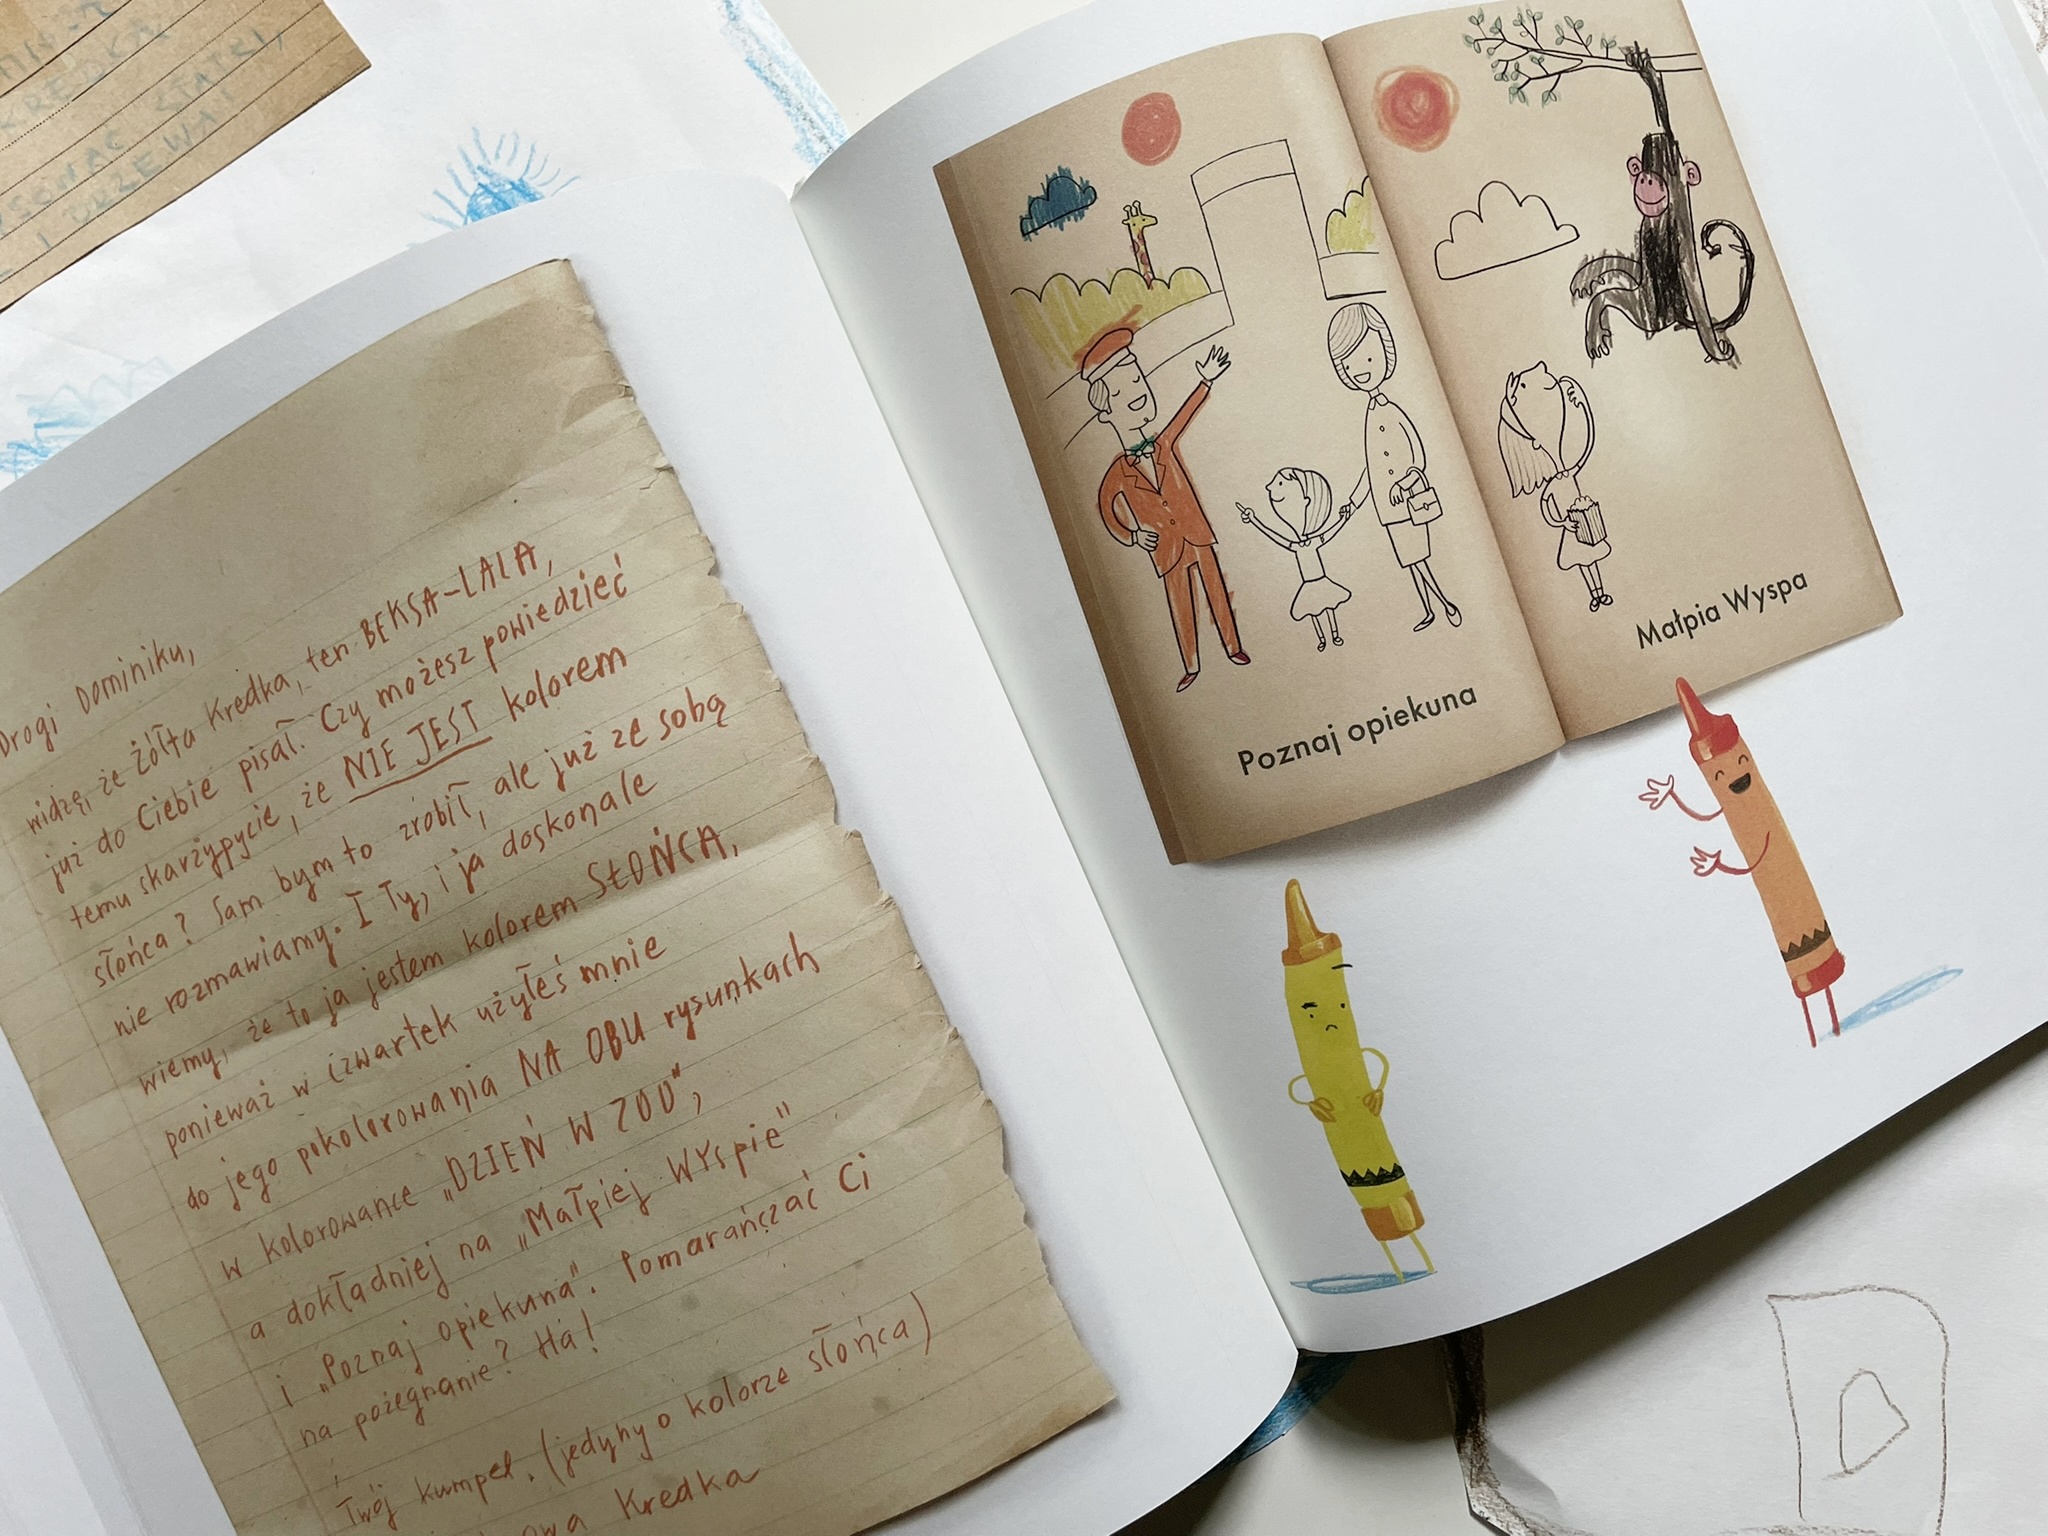 KREDKA
Drogi Dominiku,
widzę, że Żółta Kredka, ten BEKSA-LALA,
już do Ciebie pisał. Czy możesz powiedzieć
temu skarżypycie, że NIE JEST kolorem
słońca? Sam bym to zrobił, ale już ze sobą
nie rozmawiamy. I Ty, i ja doskonale
wiemy, że to ja jestem kolorem SŁOŃCA,
ponieważ w czwartek użyłeś mnie
do jego pokolorowania NA OBU rysunkach
w kolorowance „DZIEŃ W ZOO",
a dokładniej na „Małpiej Wyspie"
i „Poznaj opiekuna". Pomarańczać Ci
na pożegnanie? Ha!
Twój kumpel. (jedyny o kolorze słońca)
Kredka
Poznaj opiekuna
Małpia Wyspa
D